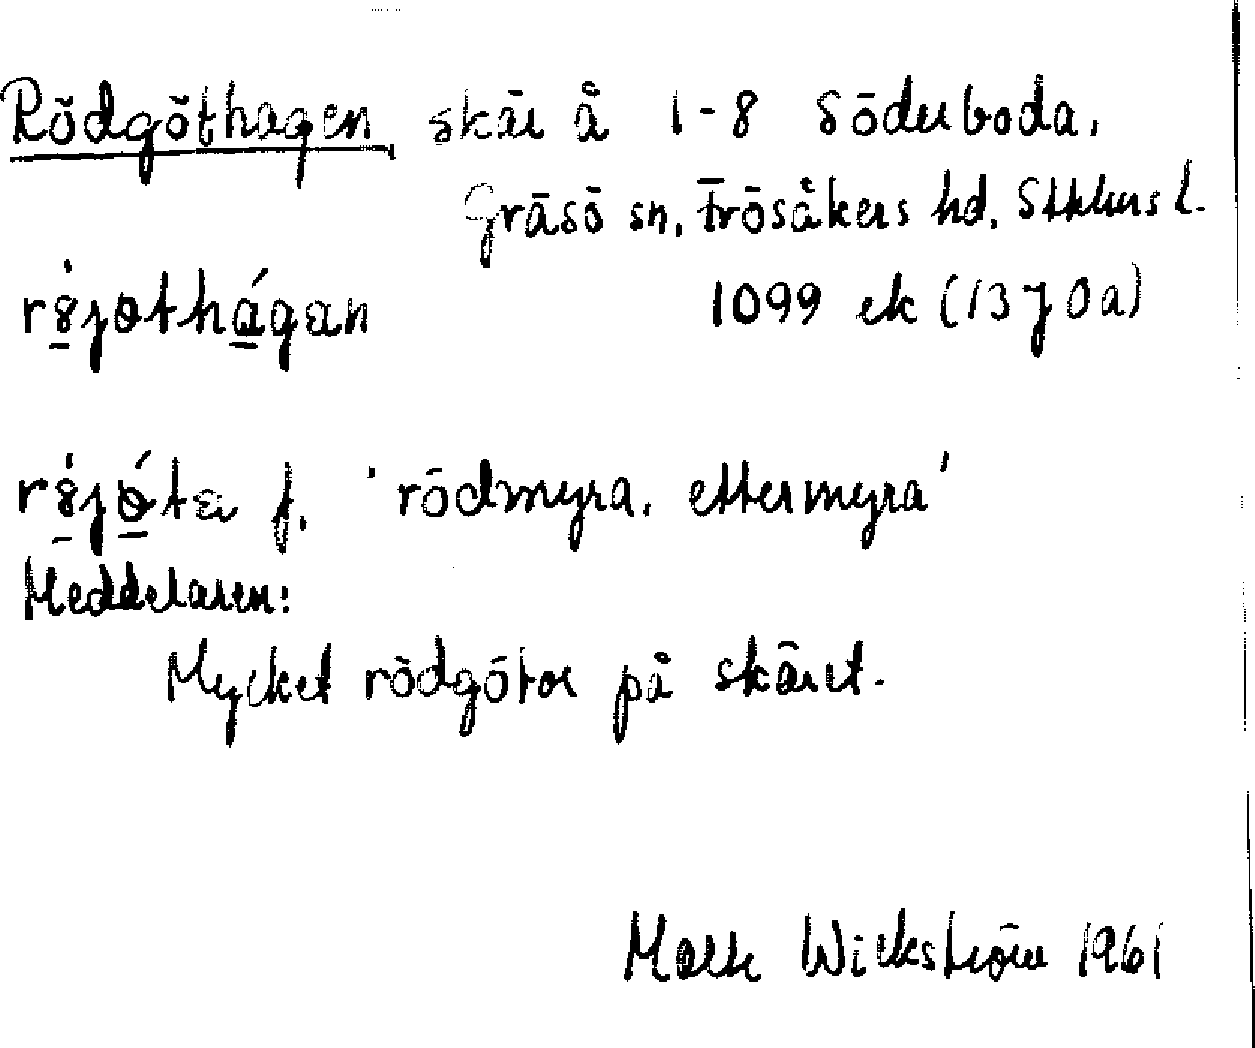 Rödgöthagen skär å 1-8 Söderboda,
Gräsö sn, Frösåkers hd, Sthlms l.
1099 ek (13 J 0a)
f. 'rödmyra, ettermyra'
Meddelaren:
Mycket rödgötor på skäret.
Wickström 1961